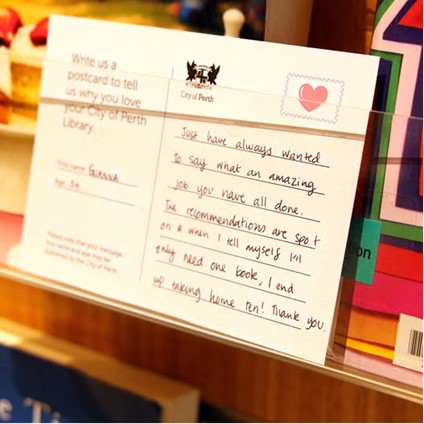 Write us a
postcard to tell
us why you love
your City of Perth
Library.
First name GIANNA
Age 34
Please note that your message,
first name and age may be
published by the City of Perth
City of Perth
Just have always wanted
to say what an amazing
job you have all done.
The recommendations are spot
on & when I tell myself I'll
only need one book, I end
up taking home ten! Thank you.
on
e Ti